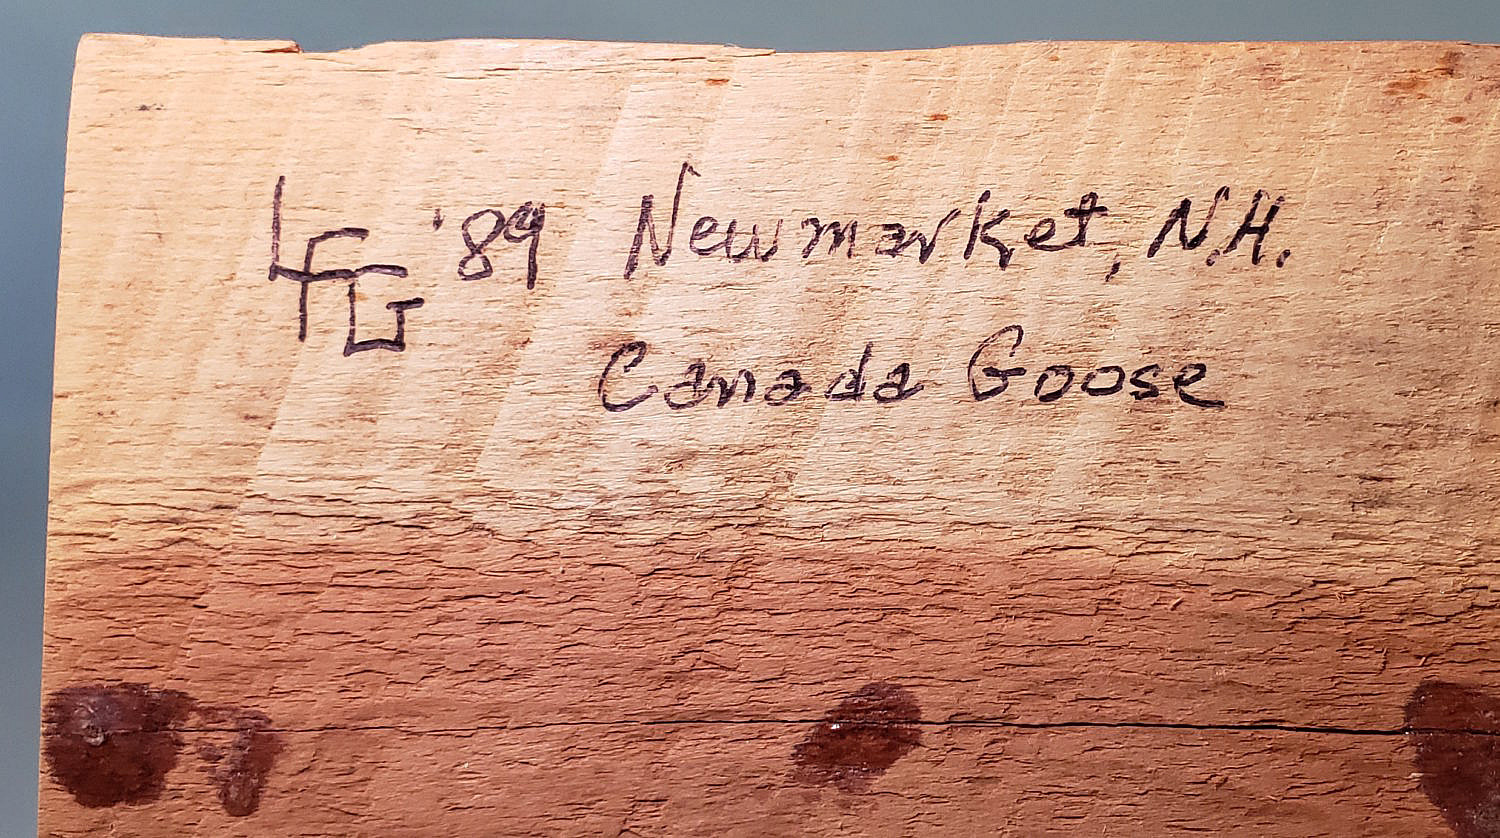 LFG '89 Newmarket, N.H.
Canada Goose